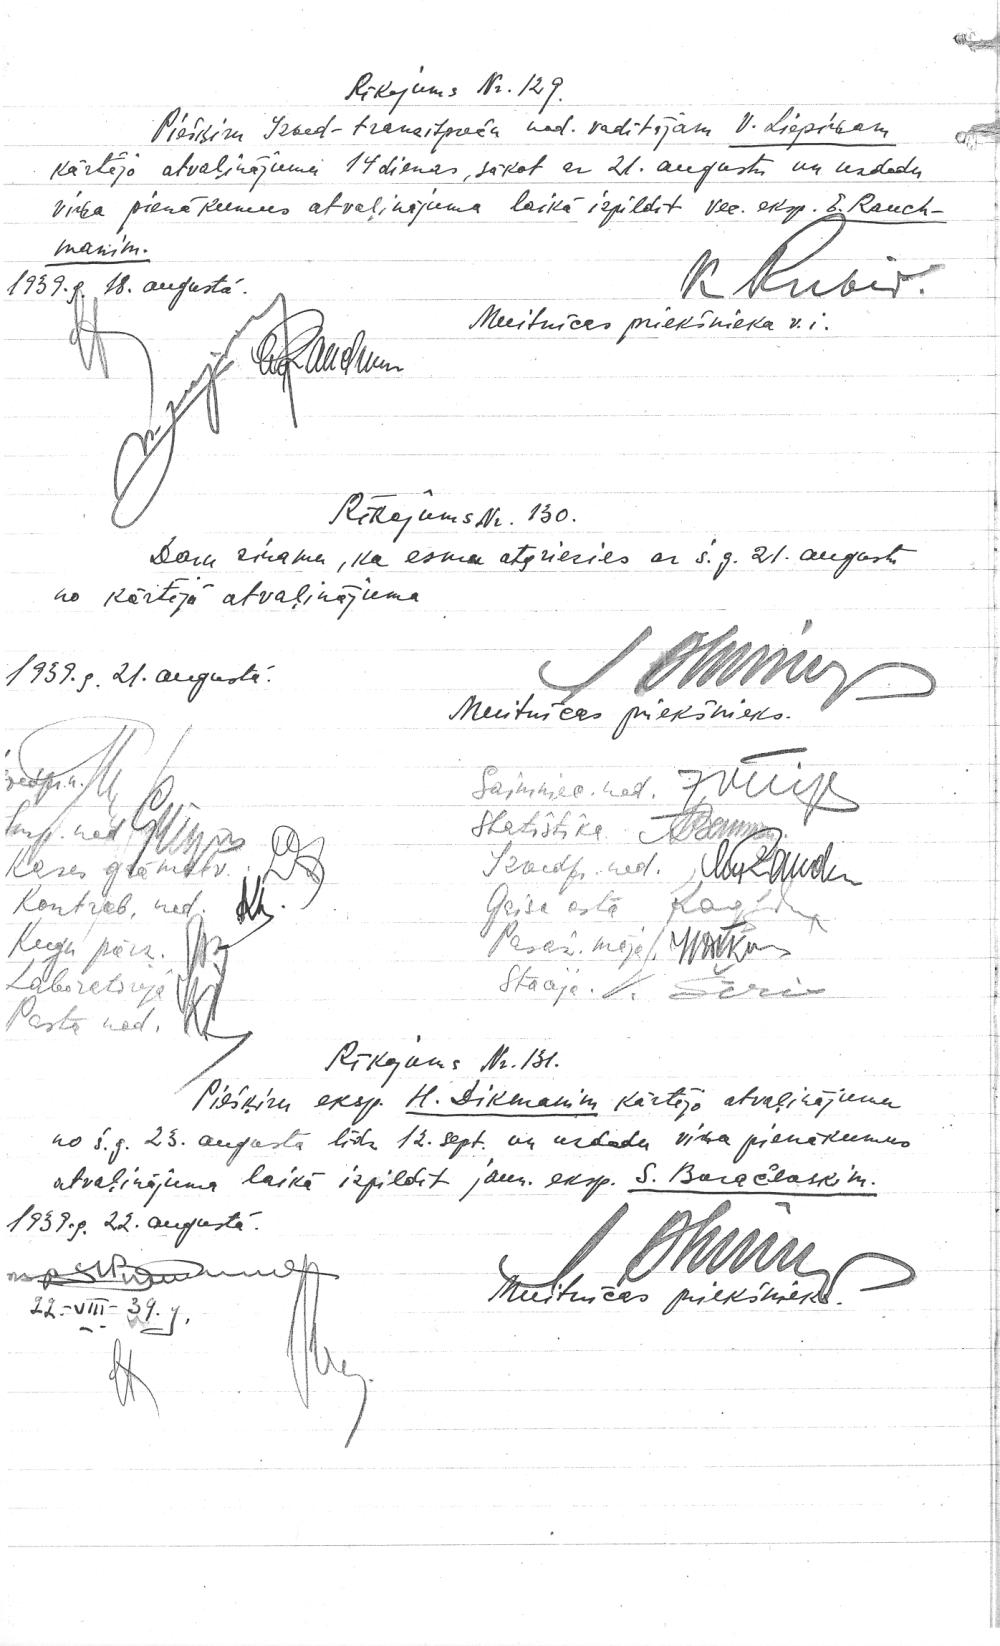 Rīkojums Nr. 129.
Piešķiru Izved-transitpreču nod. vadītājam V. Liepiņam
kārtējo atvaļinājumu 14 dienas, sākot ar 21. augustu un uzdodu
viņa pienākumus atvaļinājuma laikā izpildīt vec. eksp. E. Rauch-
manim.
1939.g. 18. augustā.
Muitnīcas priekšnieka v. i.
Rīkojums Nr. 130.
Daru zināmu, ka esmu atgriezies ar š. g. 21. augustu
no kārtējā atvaļinājuma
1939.g. 21. augustā.
Muitnīcas priekšnieks.
Saimniec. nod.
Insp. nod.
Statistika
Kases grāmatv.
Izvedpr. nod.
Kontrab. nod.
Gaisa osta
Kuģu pārz.
Pasaž. māja
Laboratorija
Stacija.
Pasta nod.
Rīkojums Nr. 131.
Piešķiru eksp. H. Dikmanim kārtējo atvaļinājumu
no š.g. 23. augusta līdz 12. sept. un uzdodu viņa pienākumus
atvaļinājuma laikā izpildīt jaun. eksp. S. Baračevskim.
1939.g. 22. augustā.
Muitnīcas priekšnieks.
22.-VIII-39. g.